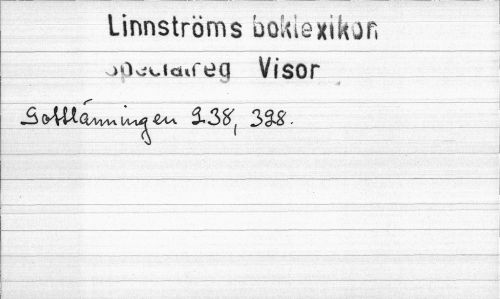 Linnströms boklexikon
Specialreg Visor
Gottlänningen 238, 398.